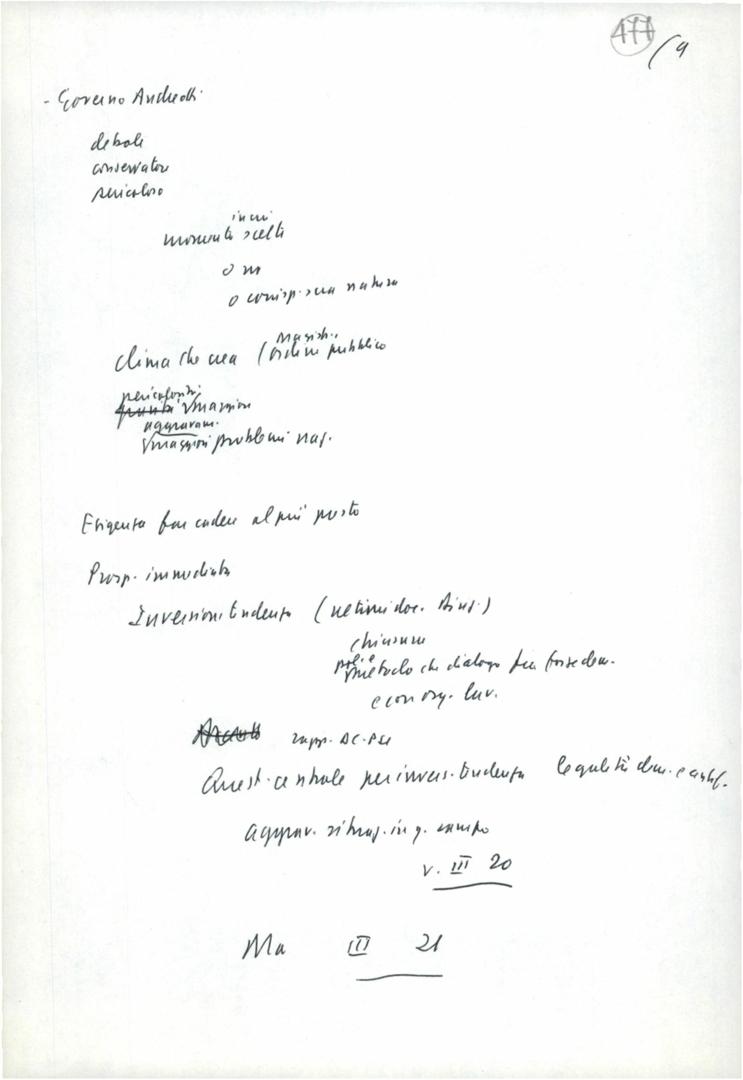 477
/9
- Governo Andreotti
debole
conservatore
pericoloso
in cui
momenti scelti
o no
o corrisp. sua natura
clima che crea (Magistr.,
ordine pubblico
pericolosità
maggiori
aggravam.
maggiori problemi naz.
Esigenza far cadere al più presto
Prosp. immediata
Inversione tendenza (
doc. Ding.)
chiusure
pol. e
metodo che dialoga fra forze dem.
e con org. lav.
rapp. DC-PSI
Quest. centrale per invers. tendenza legalità dem. e antif.
aggrav. situaz. in q. campo
v. III 20
Ma III 21